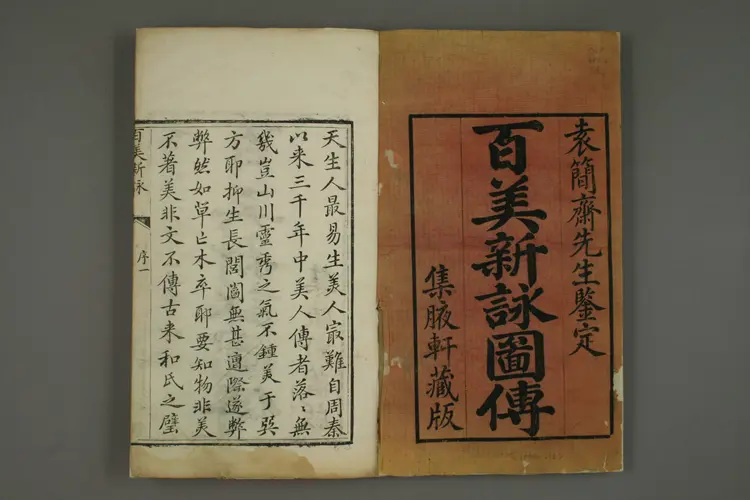 袁簡齋先生鑒定
百美新詠圖傳
集腋軒藏版
天生人最易生美人寂難自周秦
以来三千年中美人傳者落〻無
幾豈山川靈秀之氣不鍾美于巽
方耶抑生長閭閻無甚遭際遂弊
弊然如草亡木卒耶要知物非美
不著美非文不傳古来和氏之璧
百美新詠
序一